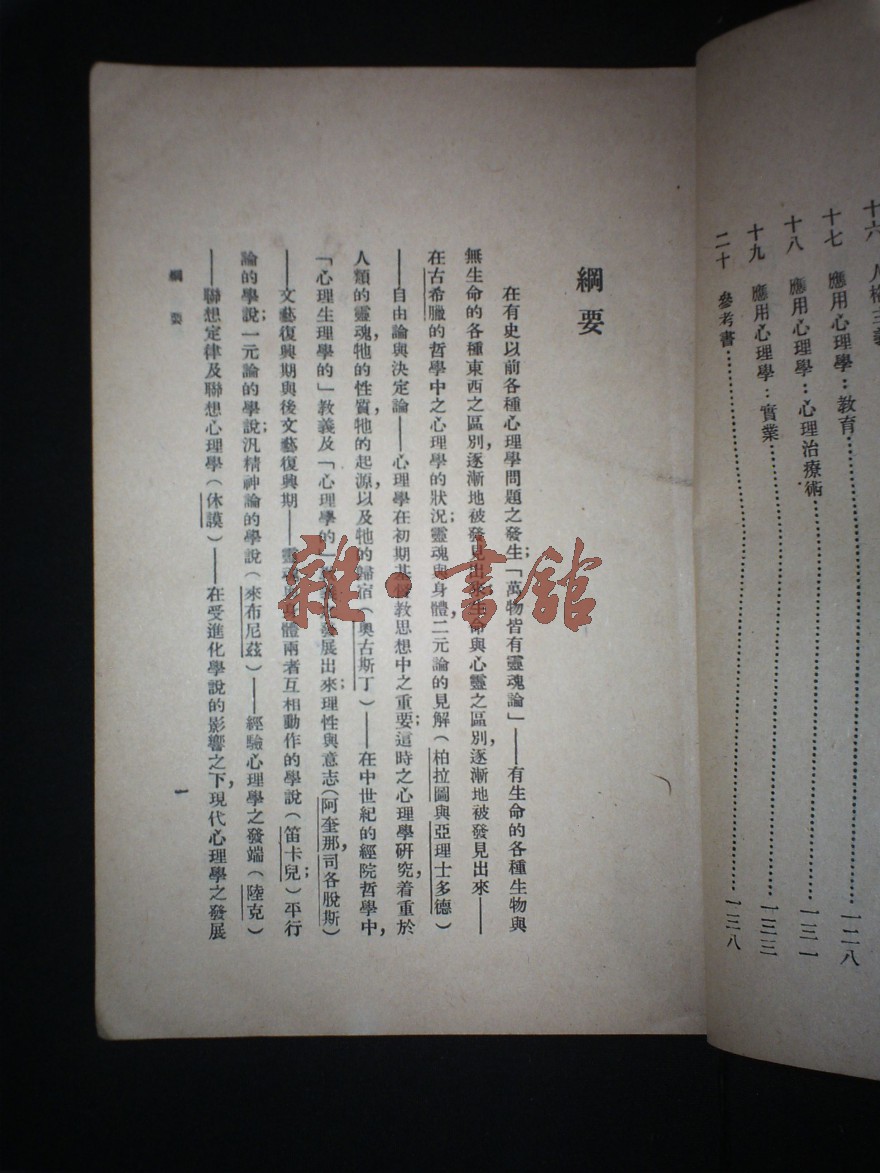 十六 人格主義
十七 應用心理學：教育……一二八
十八 應用心理學：心理治療術……一三一
十九 應用心理學：實業……一三三
二十 參考書……一三八
綱要
在有史以前各種心理學問題之發生；「萬物皆有靈魂論」——有生命的各種生物與
無生命的各種東西之區別，逐漸地被發見出來；生命與心靈之區別，逐漸地被發見出來——
在古希臘的哲學中之心理學的狀況；靈魂與身體二元論的見解（柏拉圖與亞理士多德）
——自由論與決定論——心理學在初期基督教思想中之重要；這時之心理學研究，着重於
人類的靈魂，牠的性質，牠的起源，以及牠的歸宿（奧古斯丁）——在中世紀的經院哲學中，
「心理生理學的」教義及「心理學的」發展出來；理性與意志（阿奎那，司各脫斯）
——文藝復興期與後文藝復興期——靈魂與身體兩者互相動作的學說（笛卡兒）；平行
論的學說；一元論的學說；汎精神論的學說（來布尼茲）——經驗心理學之發端（陸克）
——聯想定律及聯想心理學（休謨）——在受進化學說的影響之下，現代心理學之發展
綱要
一
雜·書館